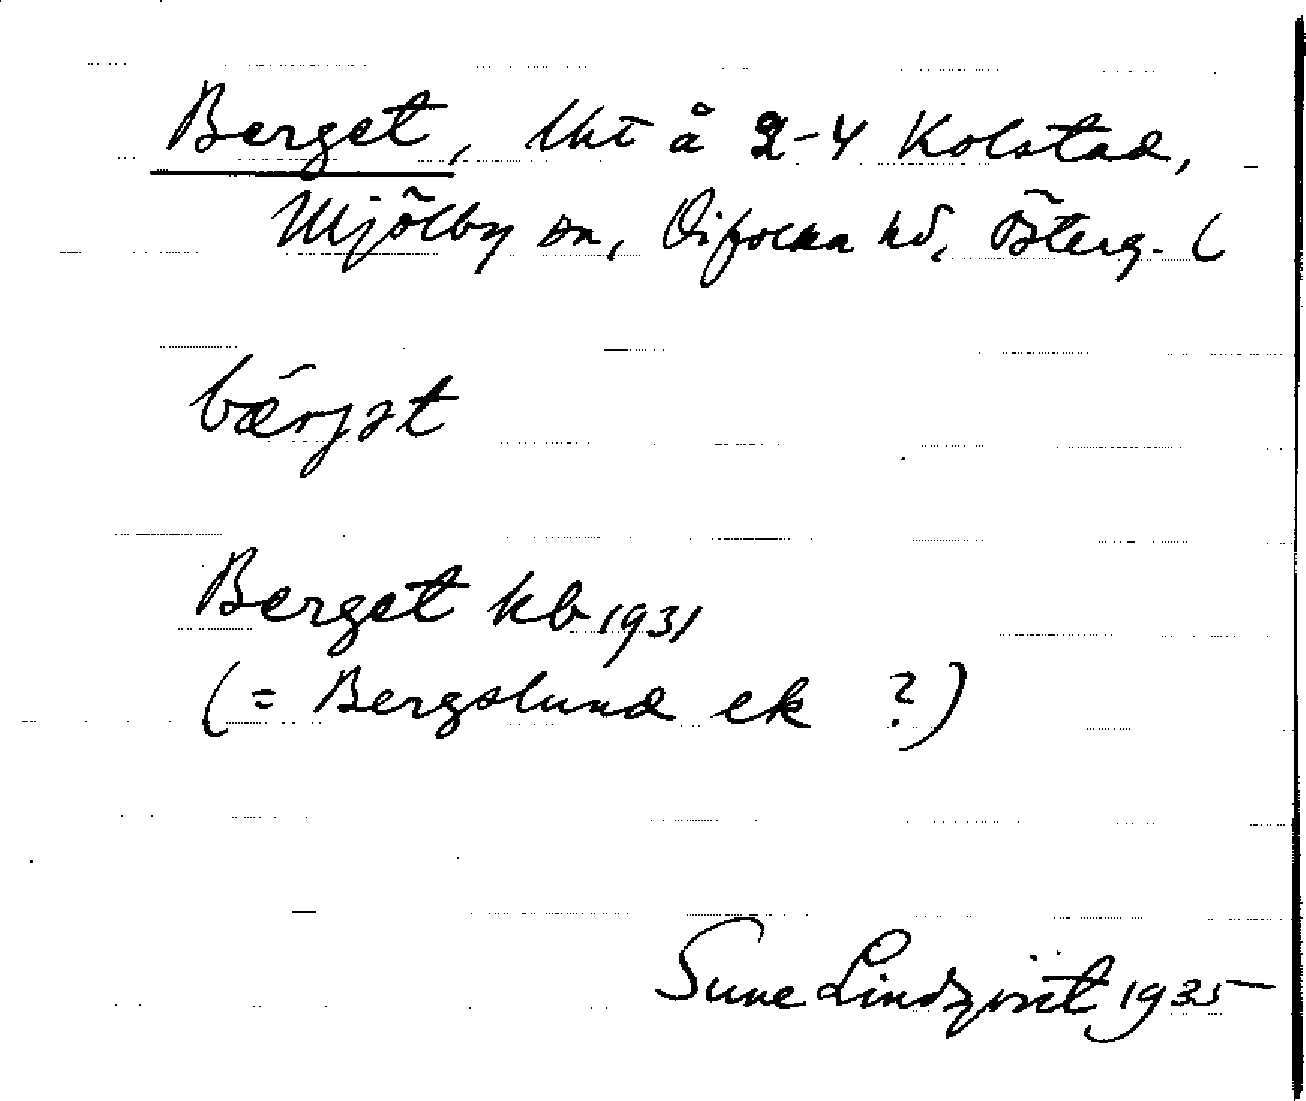 Berget, lht å 2-4 Kolstad,
Mjölby sn, Vifolka hd, Österg. l
bærjət
Berget kb 1931
(= Bergslund ek ?)
Sune Lindqvist 1935